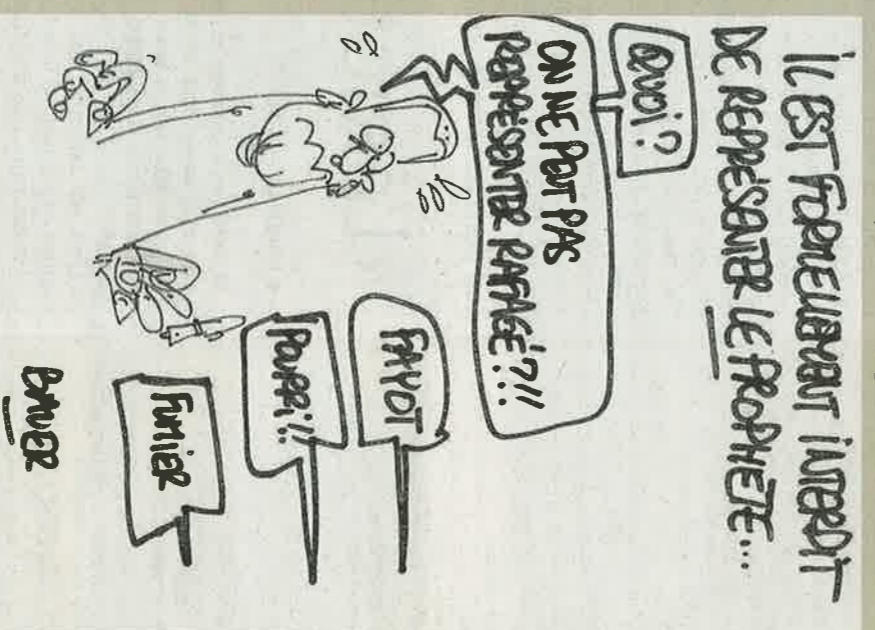 iL EST FORMELLEMENT iNTERDiT
DE REPRÉSENTER LE PROPHETE...
QUOi?
ON NE PEUT PAS
REPRÉSENTER RAFFAGÉ?!!
FAYOT
POURRi!!
FUMiER